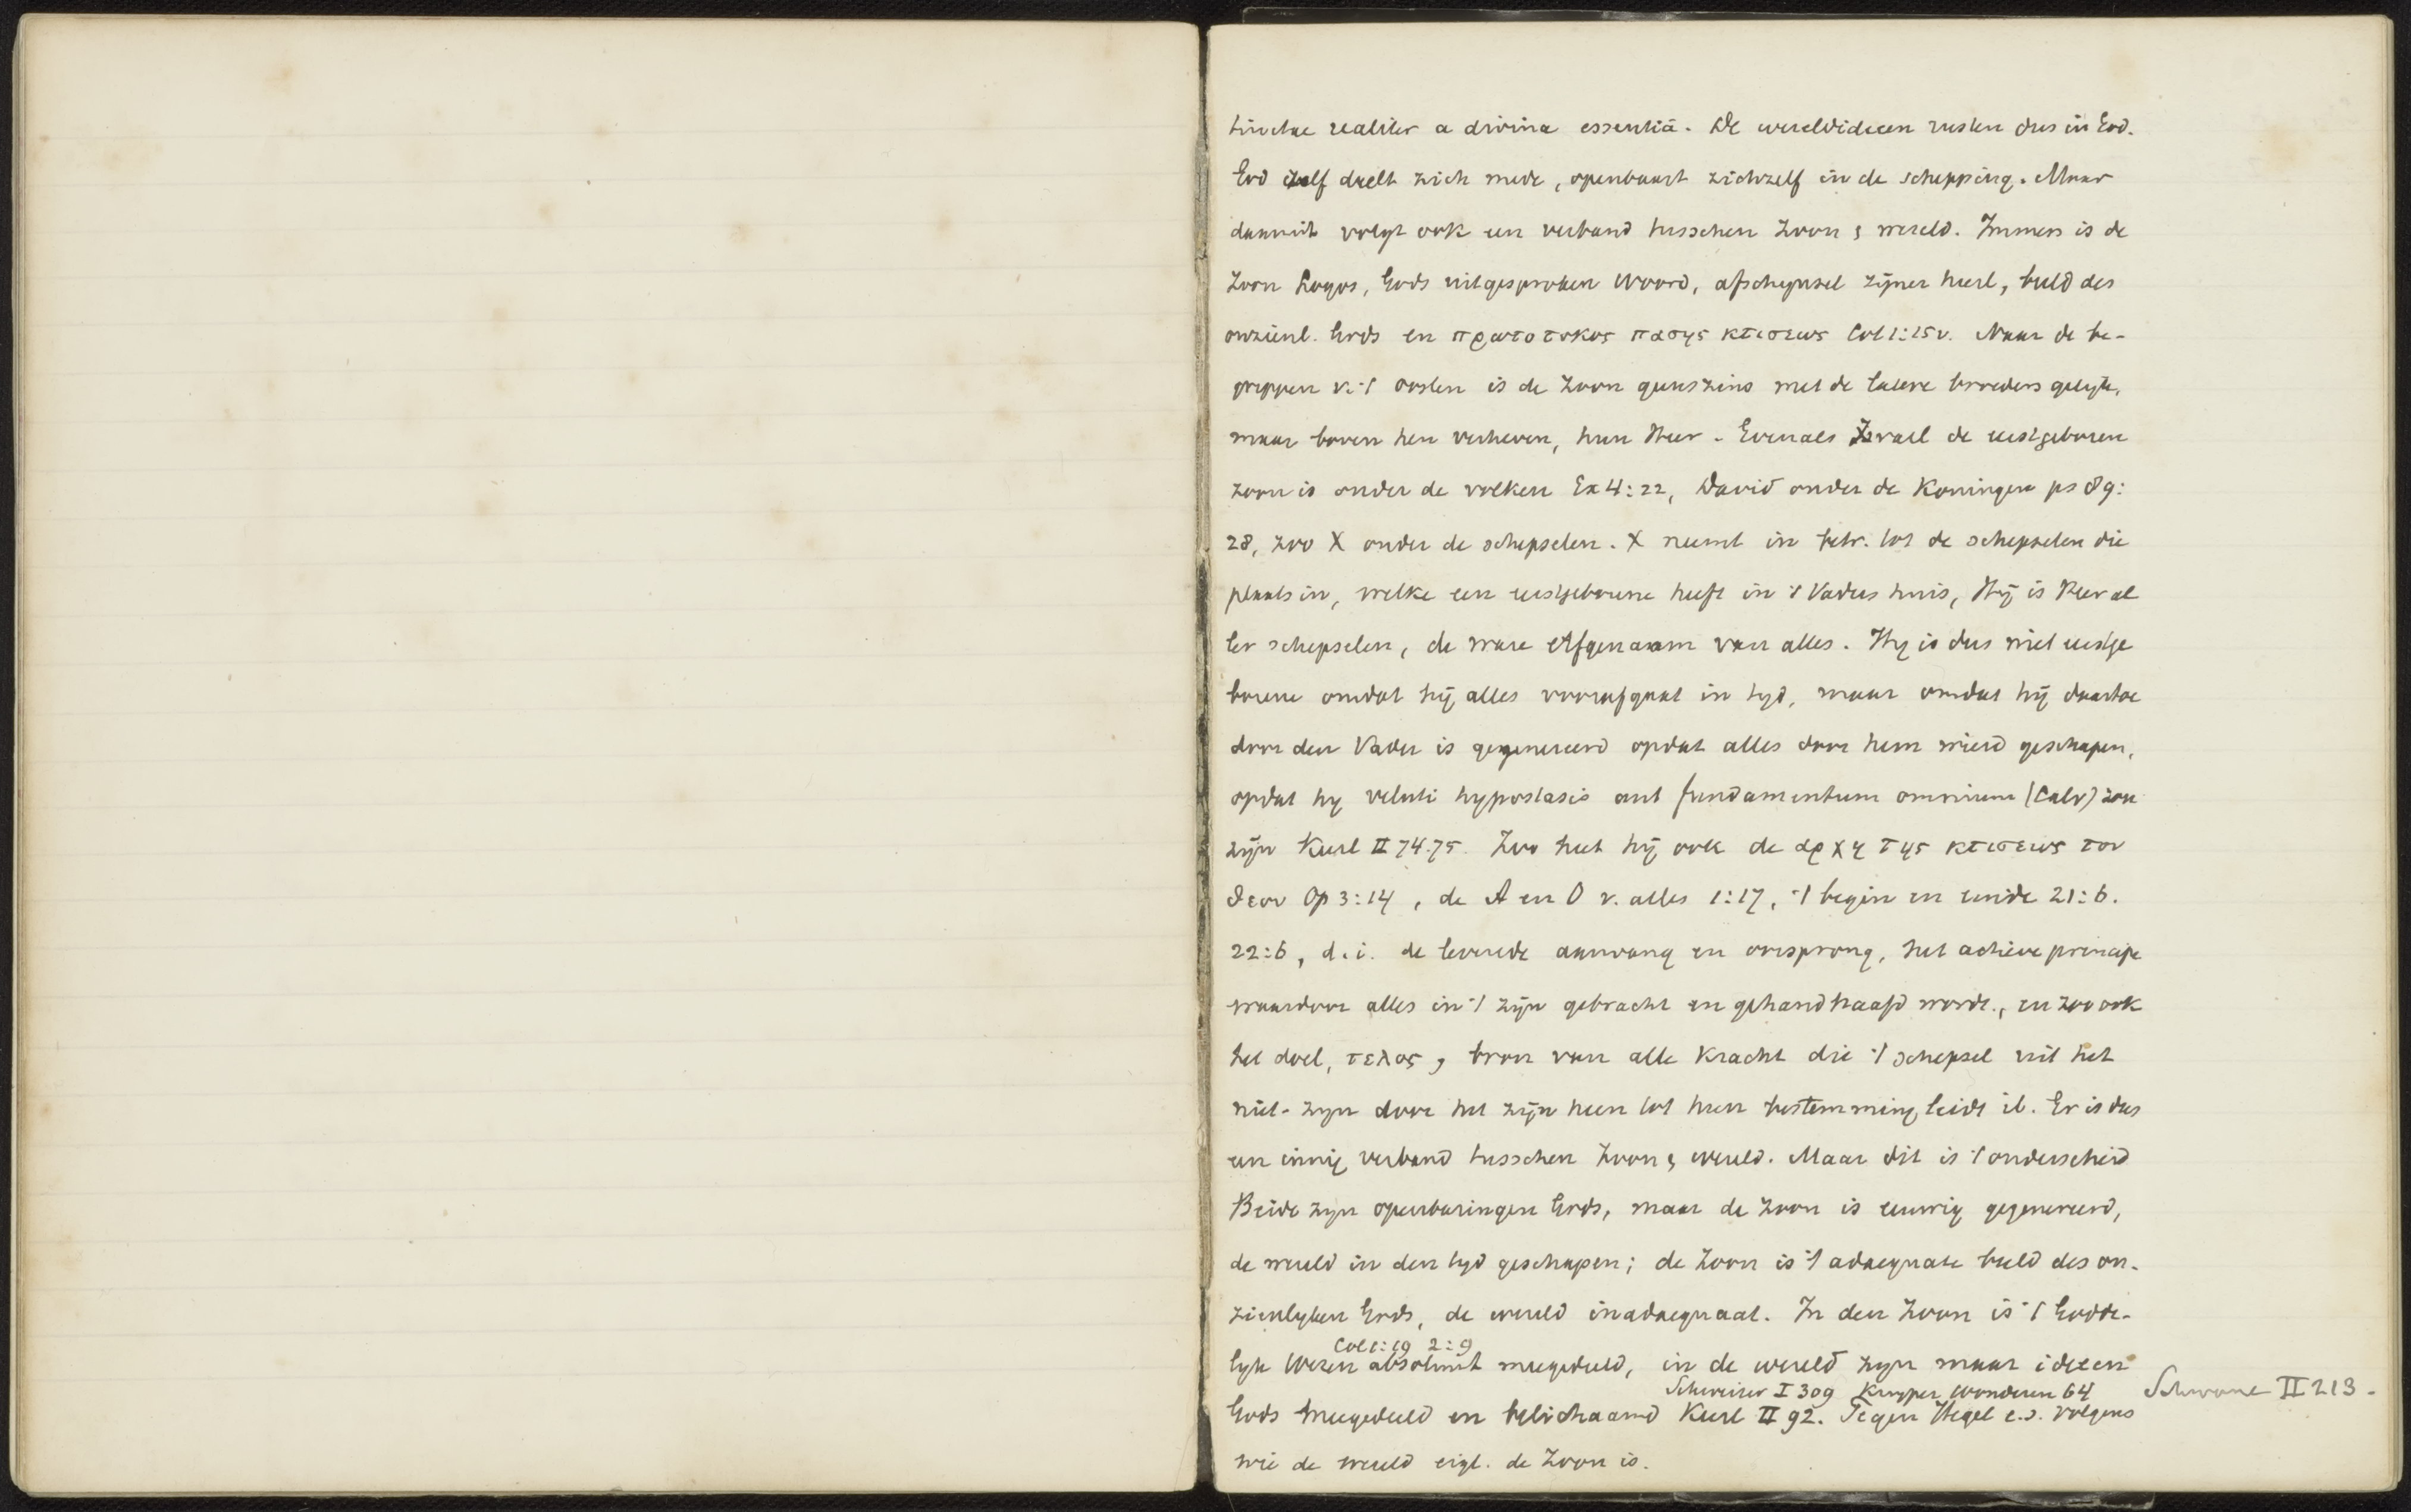 tinctae realiter a divina essentiā. De wereldideeen rusten dus in God.
God zelf deelt zich mede, openbaart zichzelf in de schepping. Maar
daaruit volgt ook een verband tusschen Zoon & wereld. Immers is de
Zoon Logos, Gods uitgesproken Woord, afschynsel zijner heerl, beeld des
onzienl. Gods en πρωτοτοκος πασης κτισεως Col 1:15v. Naar de be-
grippen v. 't oosten is de Zoon geenszins met de latere broeders gelijk,
maar boven hen verheven, hun Heer. Evenals Israel de eerstgeboren
zoon is onder de volken Ex 4:22, David onder de Koningen ps 89:
28, zoo X onder de schepselen. X neemt in betr. tot de schepselen die
plaats in, welke een eerstgeborene heeft in 't Vaders huis, Hij is Heer al
ler schepselen, de ware erfgenaam van alles. Hy is dus niet eerstge
borene omdat hij alles voorafgaat in tyd, maar omdat hij daartoe
door den Vader is gegenereerd opdat alles door hem wierd geschapen,
opdat hy veluti hypostasis aut fundamentum omnium (Calv) zou
zijn Keerl II 74.75. Zoo heet hij ook de αρχη της κτισεως του
θεου Op 3:14, de A en O v. alles 1:17, 't begin en einde 21:6.
22:6, d.i. de levende aanvang en oorsprong, het actieve principe
waardoor alles in 't zijn gebracht en gehandhaafd wordt., en zoo ook
het doel, τελος, bron van alle kracht die 't schepsel uit het
niet-zyn door het zijn heen tot hun bestemming leidt ib. Er is dus
een innig verband tusschen Zoon & wereld. Maar dit is 't onderscheid
Beide zyn openbaringen Gods, maar de Zoon is eeuwig gegenereerd,
de wereld in den tyd geschapen; de Zoon is 't adaequate beeld des on-
zienlyken Gods, de wereld inadaequaat. In den Zoon is 't Godde-
Col 1:19 2:9
lyk Wezen absoluut meegedeeld, in de wereld zyn maar ideeen
Schweizer I 309 Kuyper Wonderen 64 Schwane II 213.
Gods meegedeeld en belichaamd Keerl II 92. Tegen Hegel e.a. volgens
wie de wereld eigl. de Zoon is.